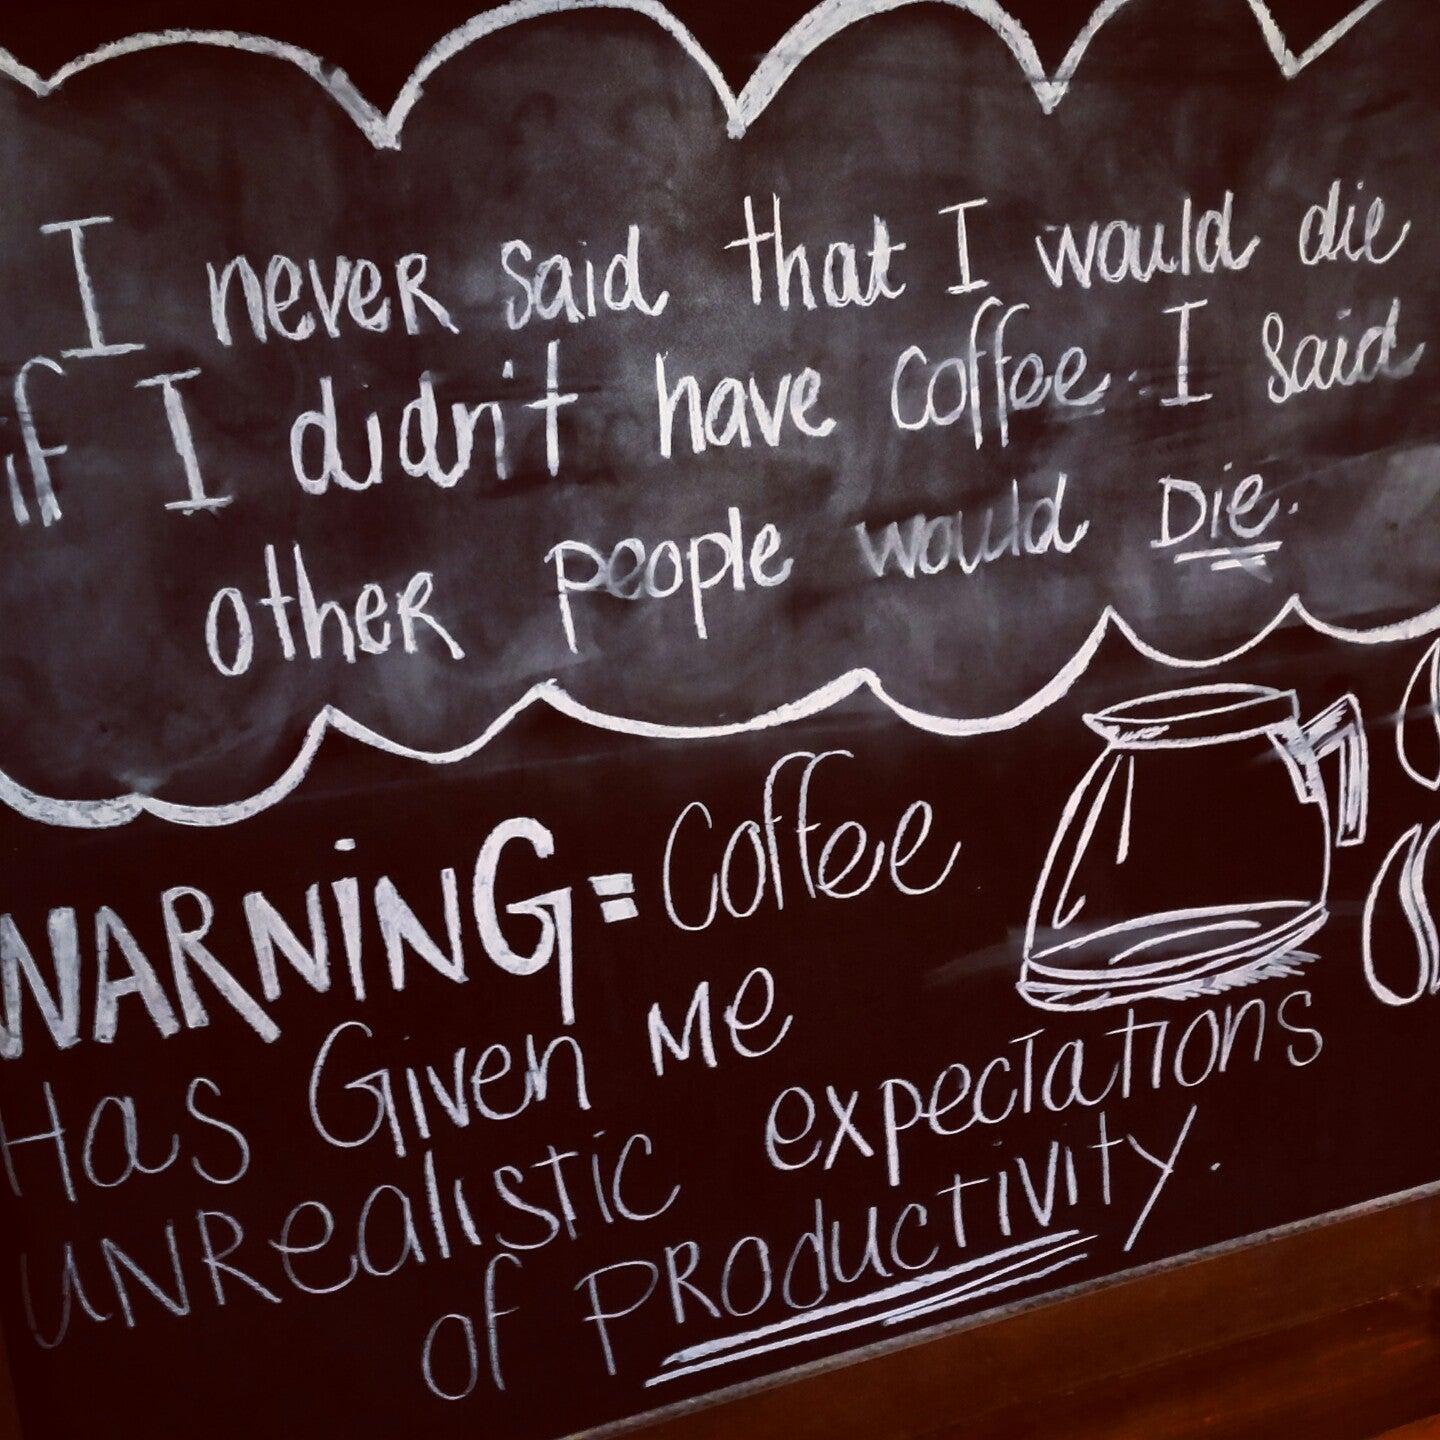 I never said that I would die
if I didn't have coffee. I said
other people would Die.
WARNING = Coffee
Has Given Me
UNRealistic expectations
of PRoductivity.